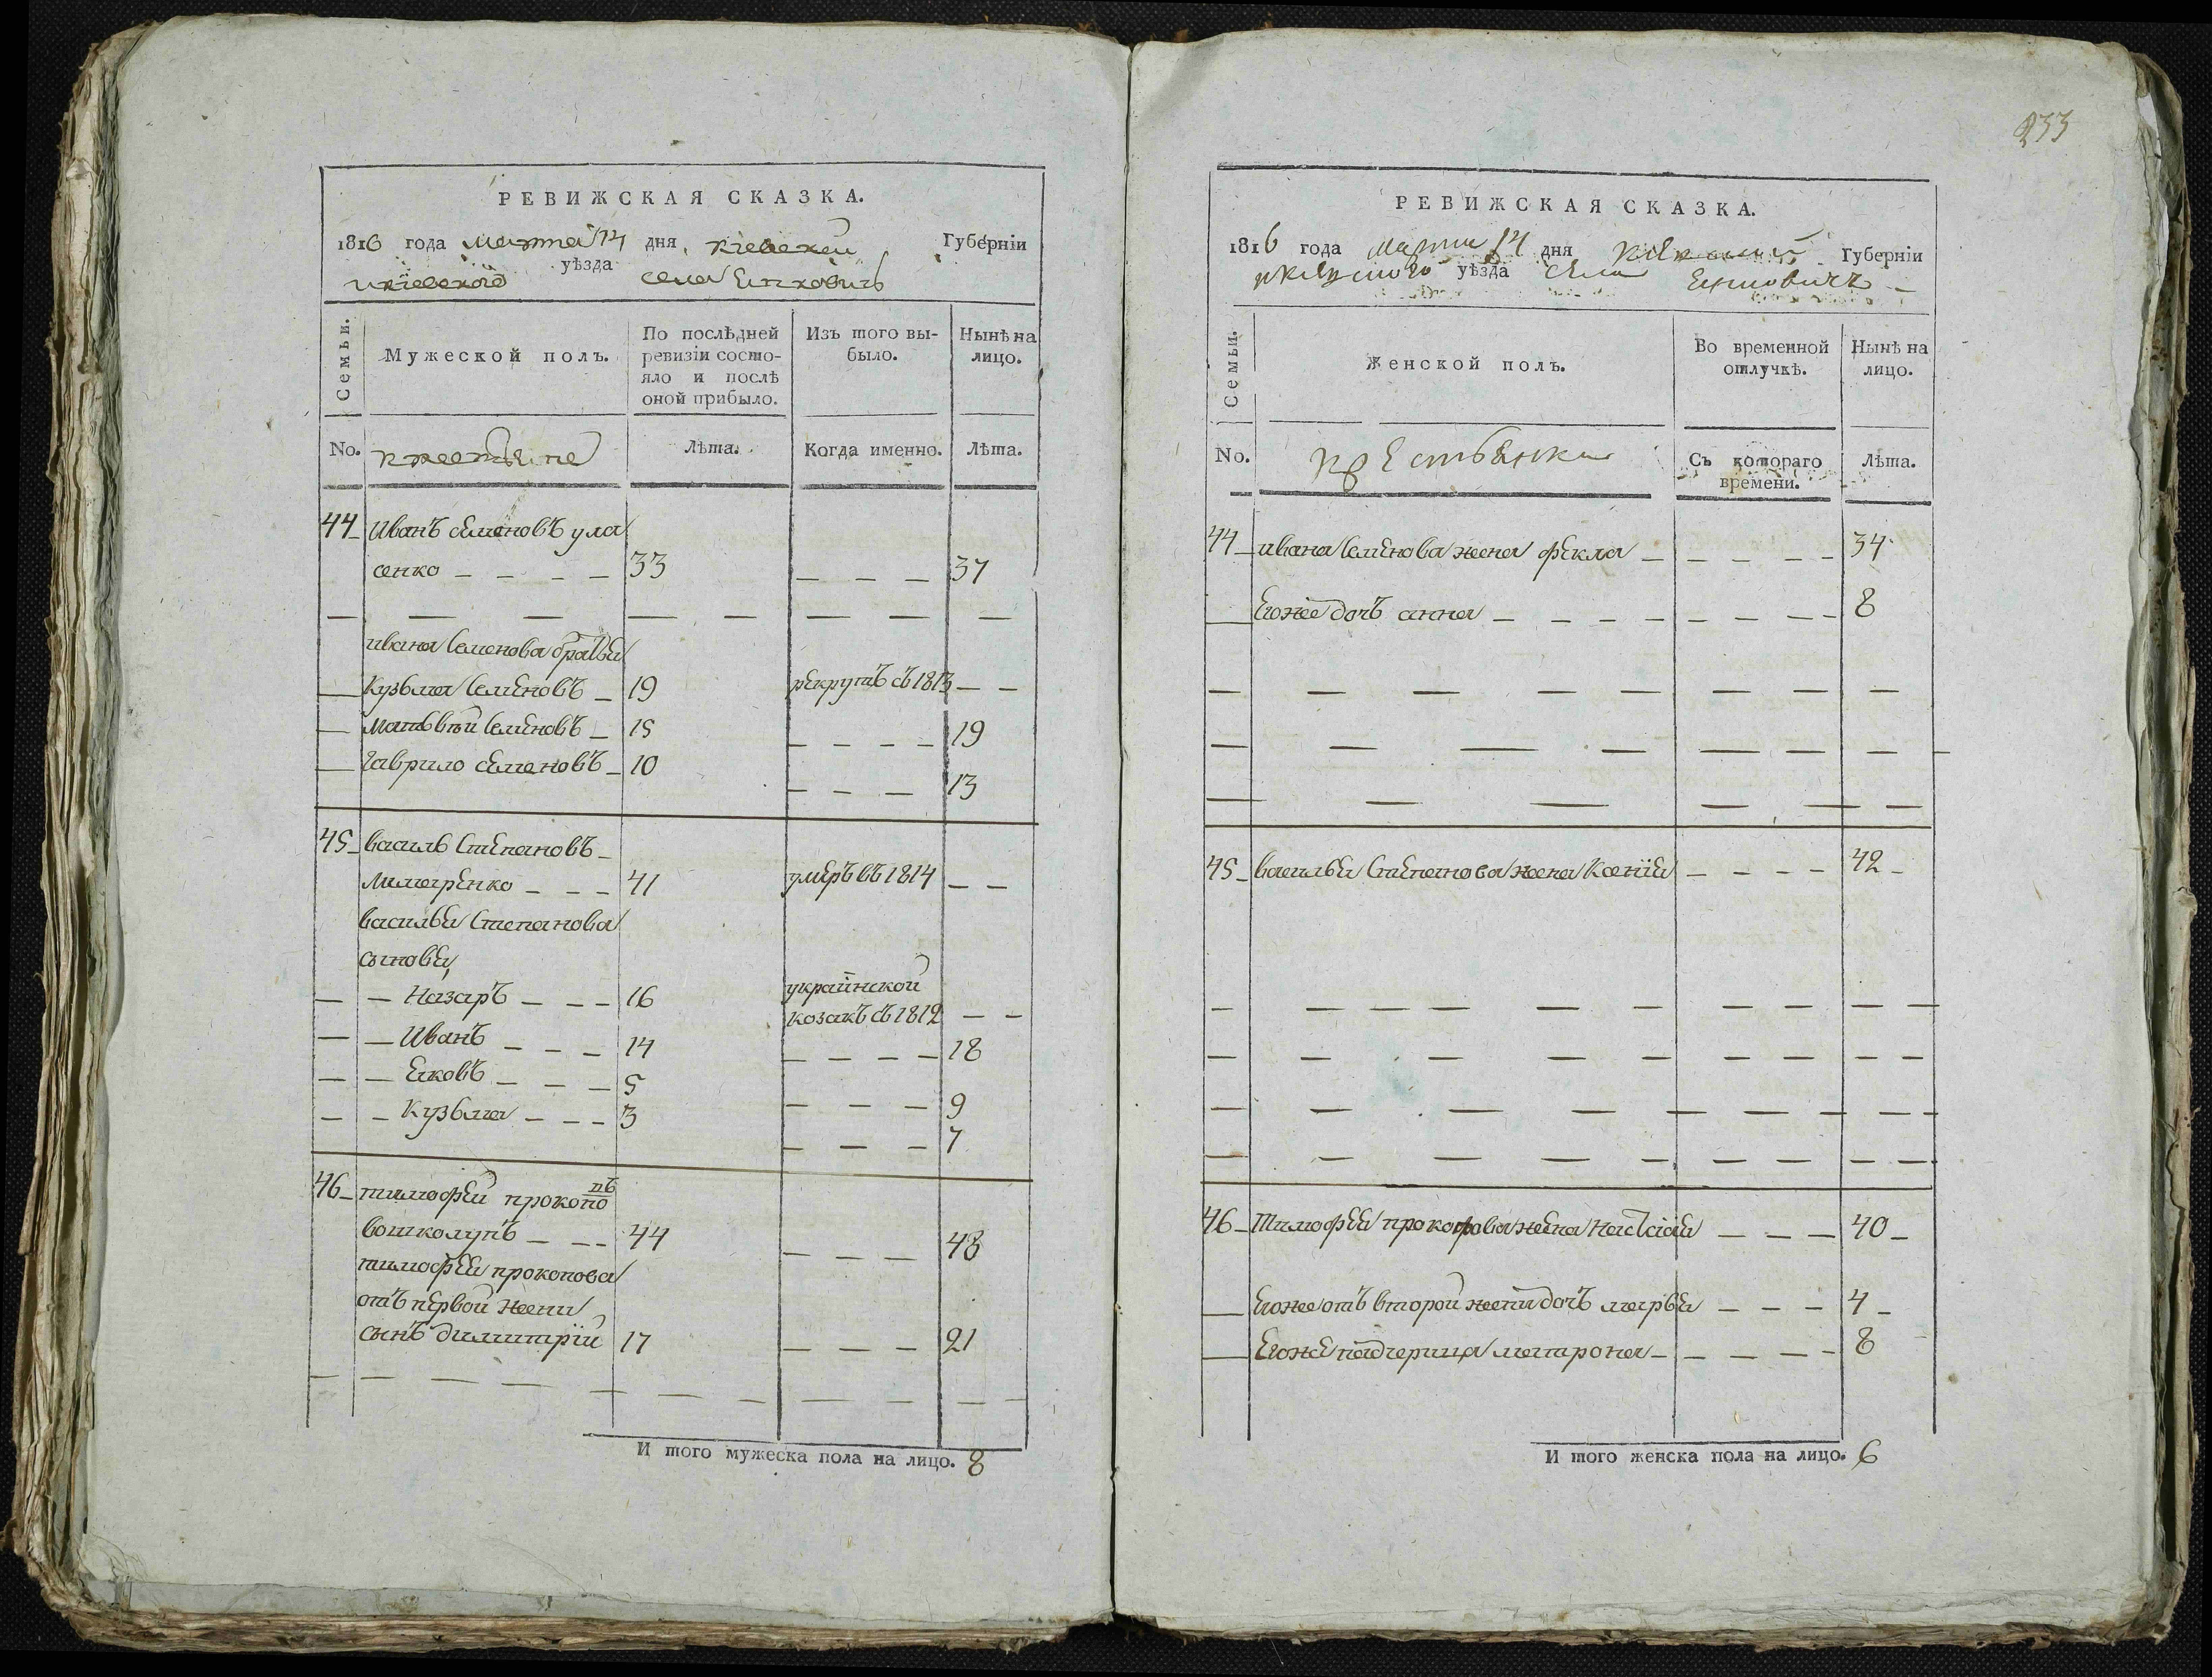 233
РЕВИЖСКАЯ СКАЗКА.
1816 года марта 14 дня, киевской Губерніи
и киевского уѣзда села
Семьи.
Мужеской полъ.
По послѣдней ревизіи состо-
яло и послѣ оной прибыло.
Изъ того вы-
было.
Нынѣ на
лицо.
No. крестьяне Лѣта. Когда именно. Лѣта.
44 Иванъ семеновъ ула
сенко — — — — 33 — — — 37
ивана семенова братья
Кузьма семеновъ — 19 рекрутъ съ 1813 — —
Матьвѣй семеновъ — 15 — — — — 19
Гаврило семеновъ — 10 — — — 13
45 василь степановъ —
Макаренко — — — 41 умеръ въ 1814 — —
василья степанова
сыновья
— — Назаръ — — — 16 украинской
козакъ съ 1812 — —
— — Иванъ — — — 14 — — — — 18
— — Яковъ — — — 5 — — — 9
— — Кузьма — — — 3 — — — 7
46 тимофей прокопо
въ
вошколупъ — — — 44 — — — 48
тимофея прокопова
отъ первой жени
сынъ димитрій 17 — — — 21
И того мужеска пола на лицо. 8
РЕВИЖСКАЯ СКАЗКА.
1816 года марта 14 дня киевской Губерніи
и киевского уѣзда села
Семьи.
Женской полъ.
Во временной
отлучкѣ.
Нынѣ на
лицо.
No. крестьянки Съ котораго
времени. Лѣта.
44 ивана семенова жена фекла — — — — — 34
Егоже дочь анна — — — — — — — — 8
45 василья степанова жена Ксенія — — — — 42 —
46 Тимофея прокопова жена Настасія — — — 40 —
Егоже отъ второй жени дочь марья — — — 4 —
Егоже падчерица матрона — — — — — 8
И того женска пола на лицо. 6